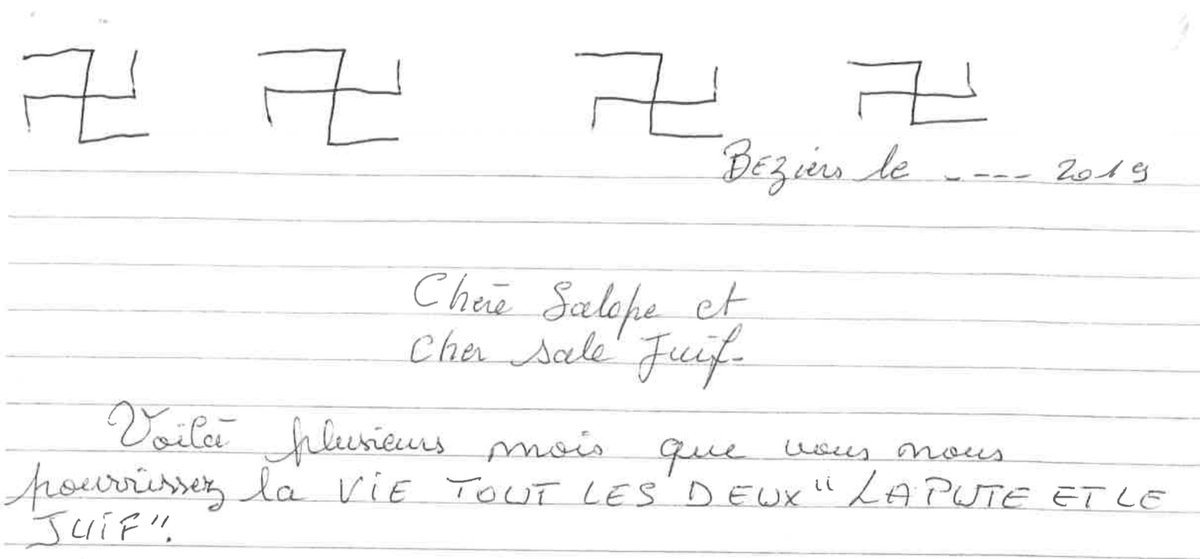 Beziers le ----- 2019
Chère Salope et
Cher sale Juif-
Voilà plusieurs mois que vous nous
pourrissez la VIE TOUT LES DEUX "LA PUTE ET LE
JUIF".